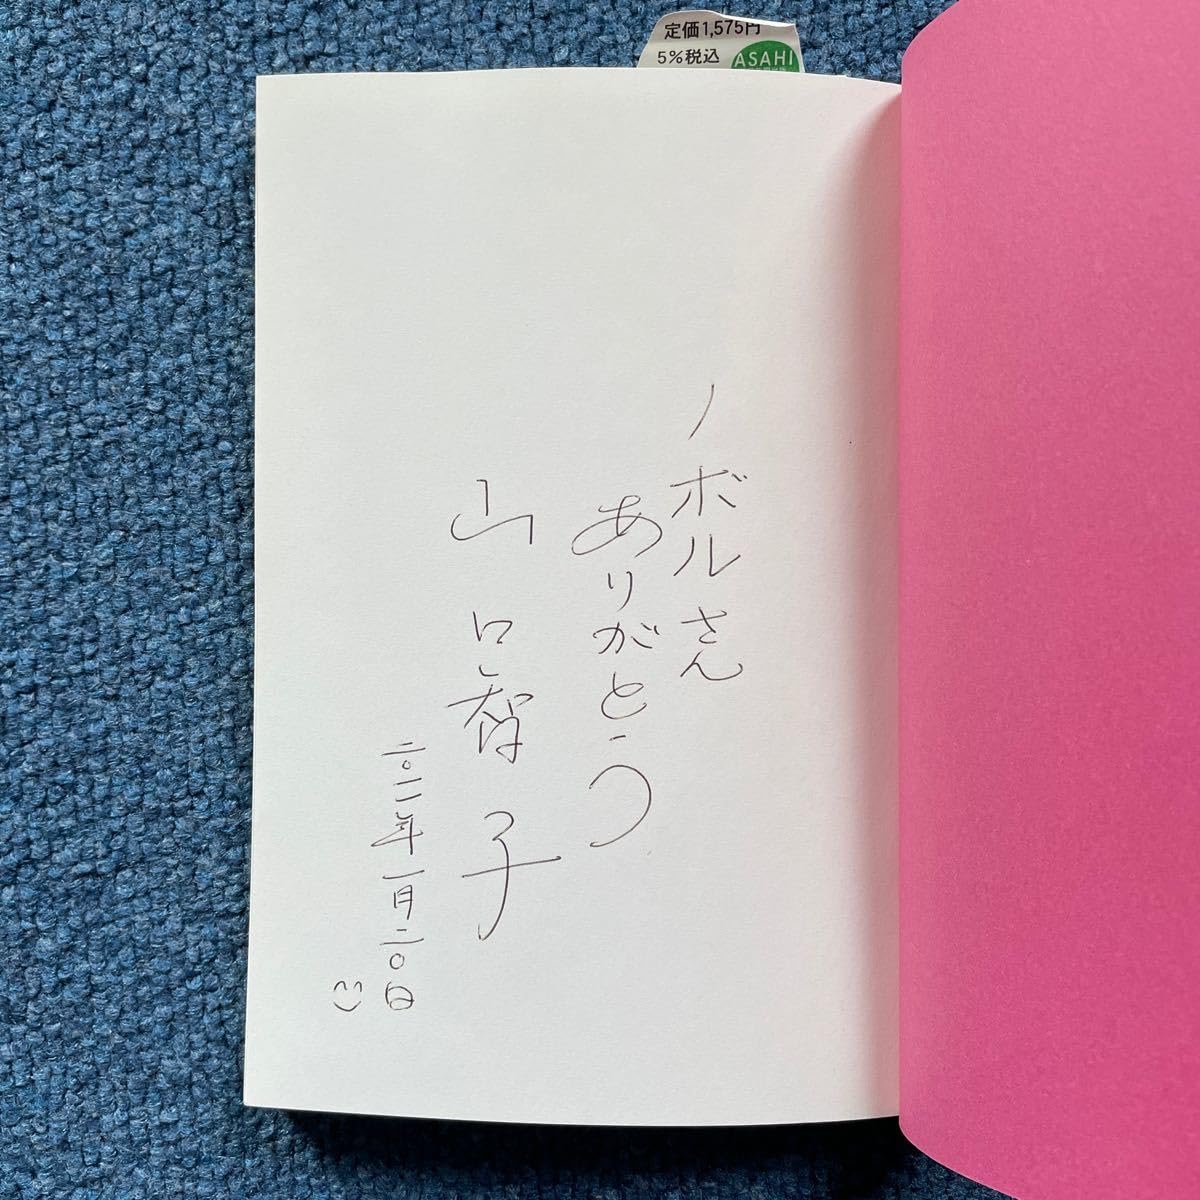 定価1,575円
5%税込
ASAHI
ノボルさん
ありがとう
山口智子
二〇一一年一月二〇日